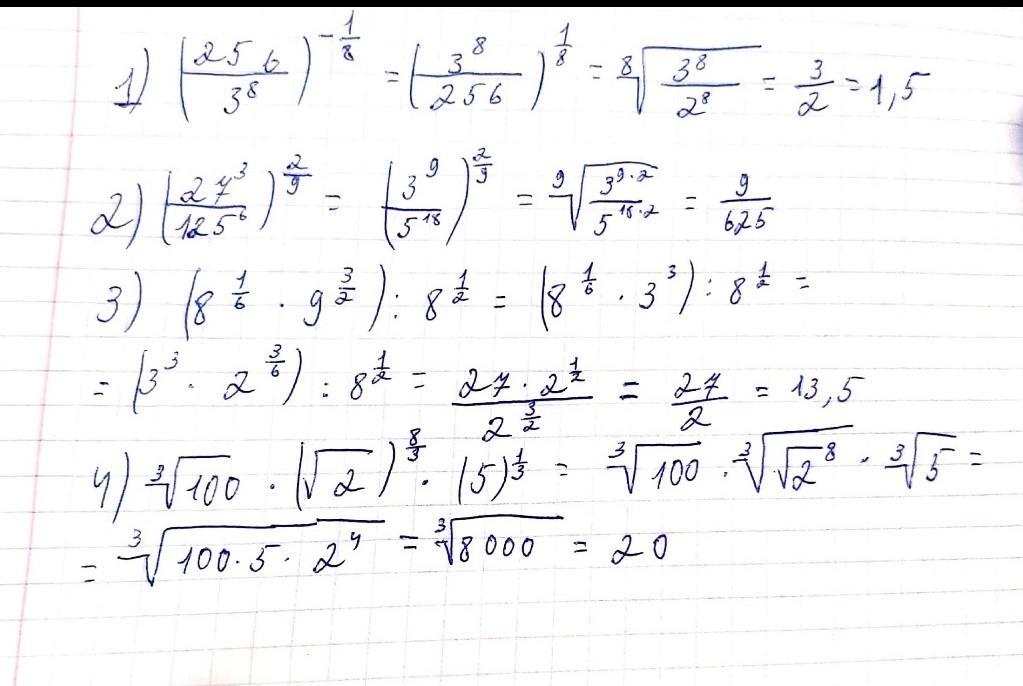 1) (256/3^8)^(-1/8) = (3^8/256)^(1/8) = ⁸√(3^8/2^8) = 3/2 = 1,5
2) (27^3/125^6)^(2/9) = (3^9/5^18)^(2/9) = ⁹√(3^(9·2)/5^(18·2)) = 9/625
3) (8^(1/6) · 9^(3/2)) : 8^(1/2) = (8^(1/6) · 3^3) : 8^(1/2) =
= (3^3 · 2^(3/6)) : 8^(1/2) = (27 · 2^(1/2))/(2^(3/2)) = 27/2 = 13,5
4) ³√100 · (√2)^(8/3) · (5)^(1/3) = ³√100 · ³√(√2^8) · ³√5 =
= ³√(100·5·2^4) = ³√8000 = 20